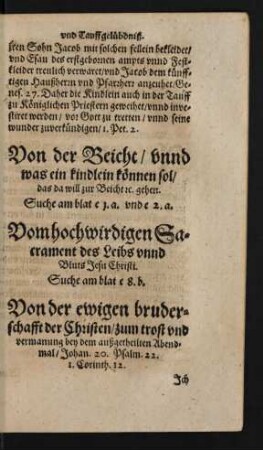 vnd Tauffgelübdniß.
sten Sohn Jacob mit solchen fellein bekleidet/
vnd Esau des erstgebornen ampts vnnd Fest-
kleider treulich verwaret/vnd Jacob dem künff-
tigen Haußherrn vnd Pfarrherr anzeuhet/Ge-
nes. 27. Daher die Kindlein auch in der Tauff
zu Königlichen Priestern geweihet/vnnd inue-
stiret werden/ vor Gott zu tretten/ vnnd seine
wunder zuuerkündigen/ 1. Pet. 2.
Von der Beicht/ vnnd
was ein kindlein können sol/
das da will zur Beicht ꝛc. gehen.
Suche am blat e 3. a. vnd e 2. a.
Vom hochwirdigen Sa-
crament des Leibs vnnd
Bluts Jesu Christi.
Suche am blat e 8. b.
Von der ewigen bruder-
schafft der Christen/zum trost vnd
vermanung bey dem außgetheilten Abend-
mal/ Johan. 20. Psalm. 22.
1. Corinth. 12.
Ich